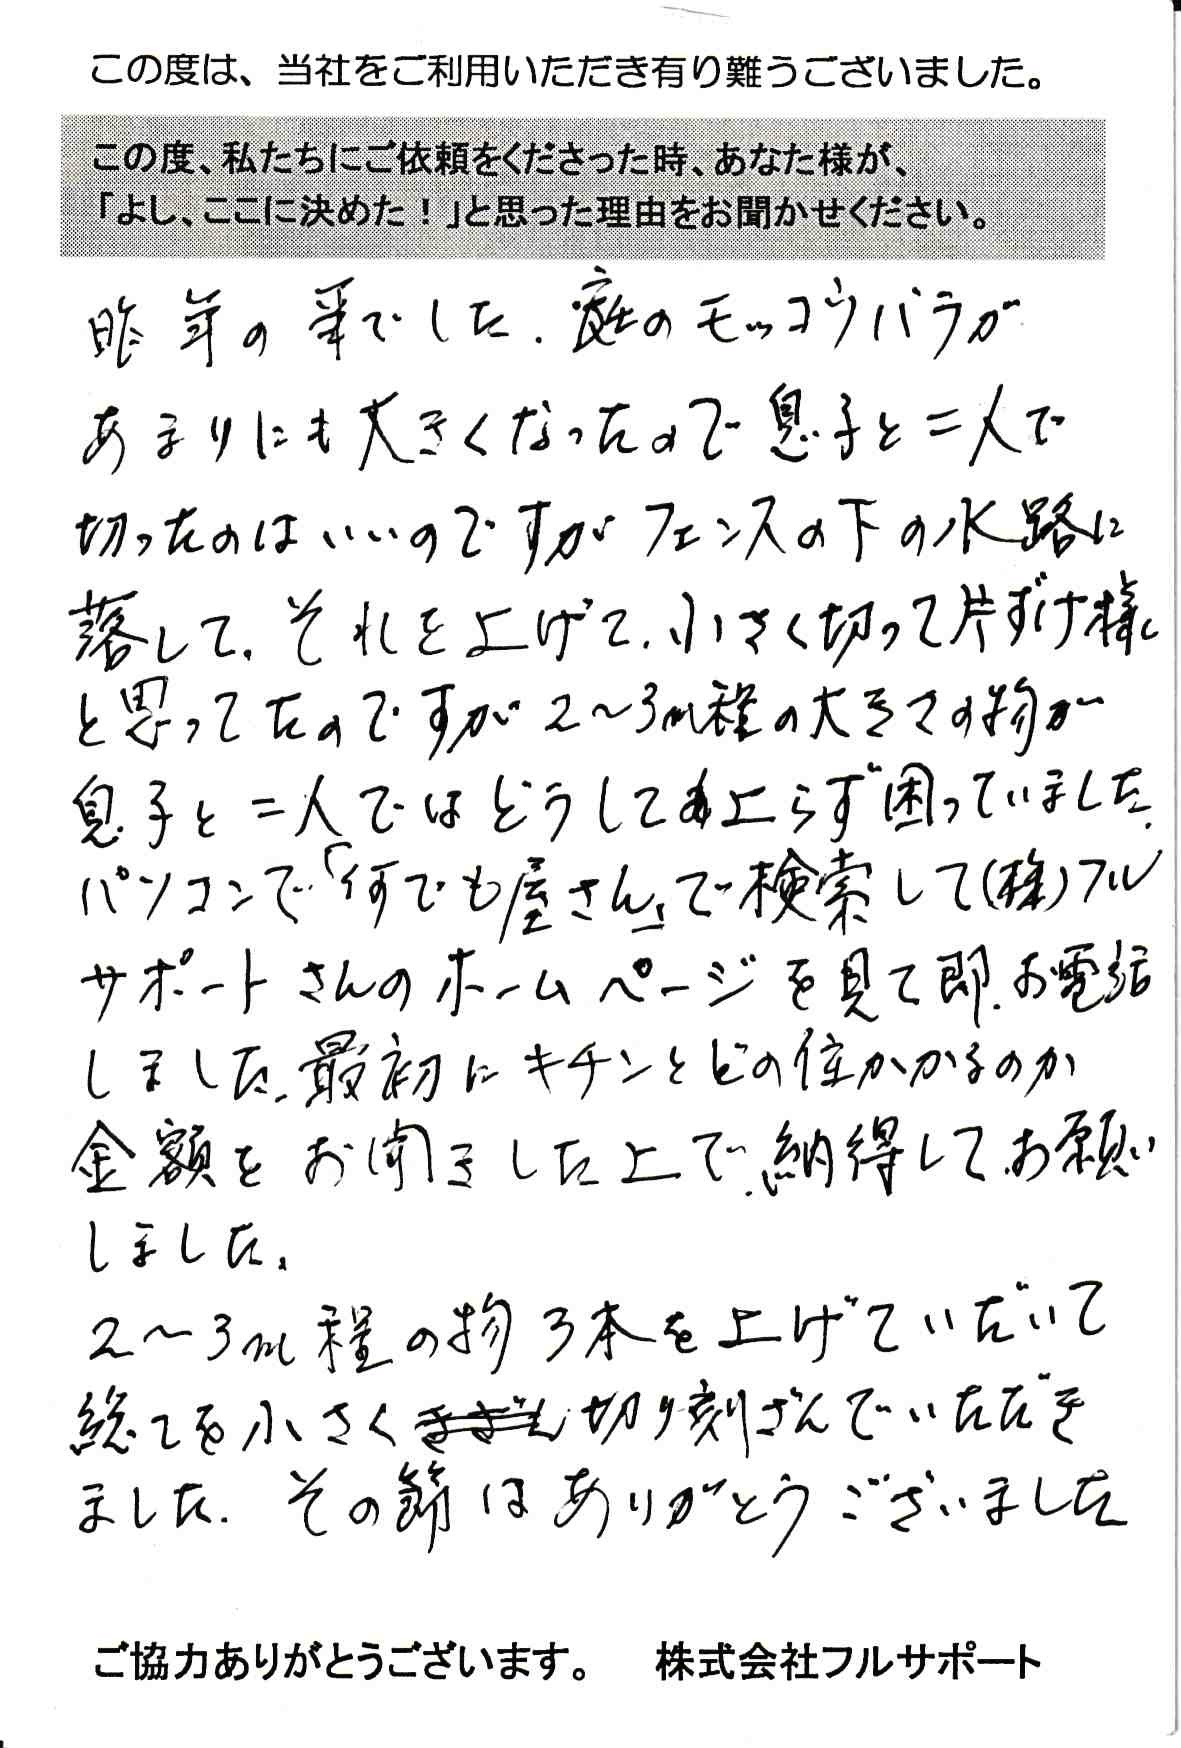 この度は、当社をご利用いただき有り難うございました。
この度、私たちにご依頼をくださった時、あなた様が、
「よし、ここに決めた！」と思った理由をお聞かせください。
昨年の事でした．庭のモッコウバラが
あまりにも大きくなったので息子と二人で
切ったのはいいのですがフェンスの下の水路に
落して、それを上げて、小さく切って片ずけ様
と思ってたのですが2〜3m程の大きさの物が
息子と二人ではどうしても上らず困っていました。
パソコンで「何でも屋さん」で検索して(株)フル
サポートさんのホームページを見て即、お電話
しました。最初にキチンとどの位かかるのか
金額をお聞きした上で、納得してお願い
しました。
2〜3m程の物3本を上げていだいて
総てを小さく切り刻ざんでいただき
ました．その節はありがとうございました
ご協力ありがとうございます。　株式会社フルサポート